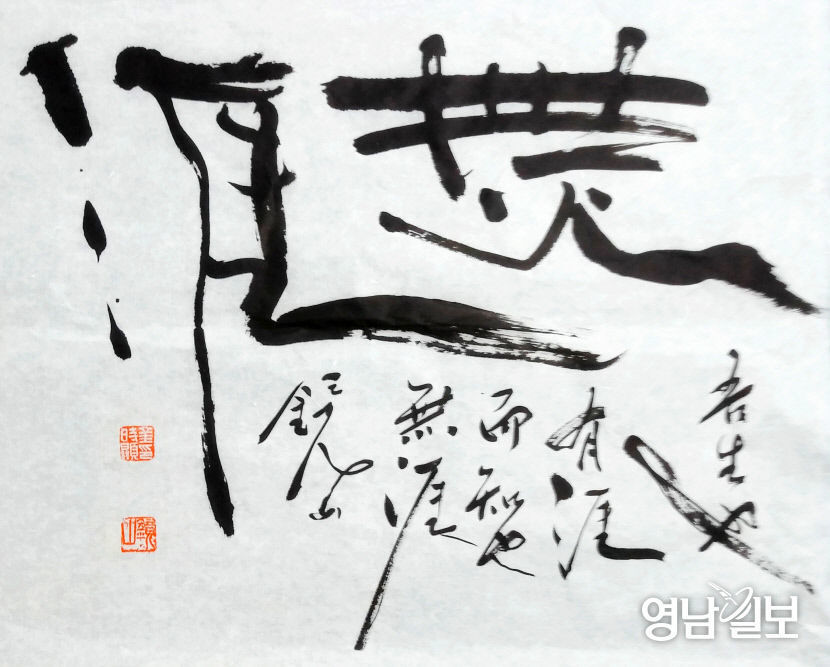 無涯
吾生也
有涯
而智也
無涯
鏡山
영남일보